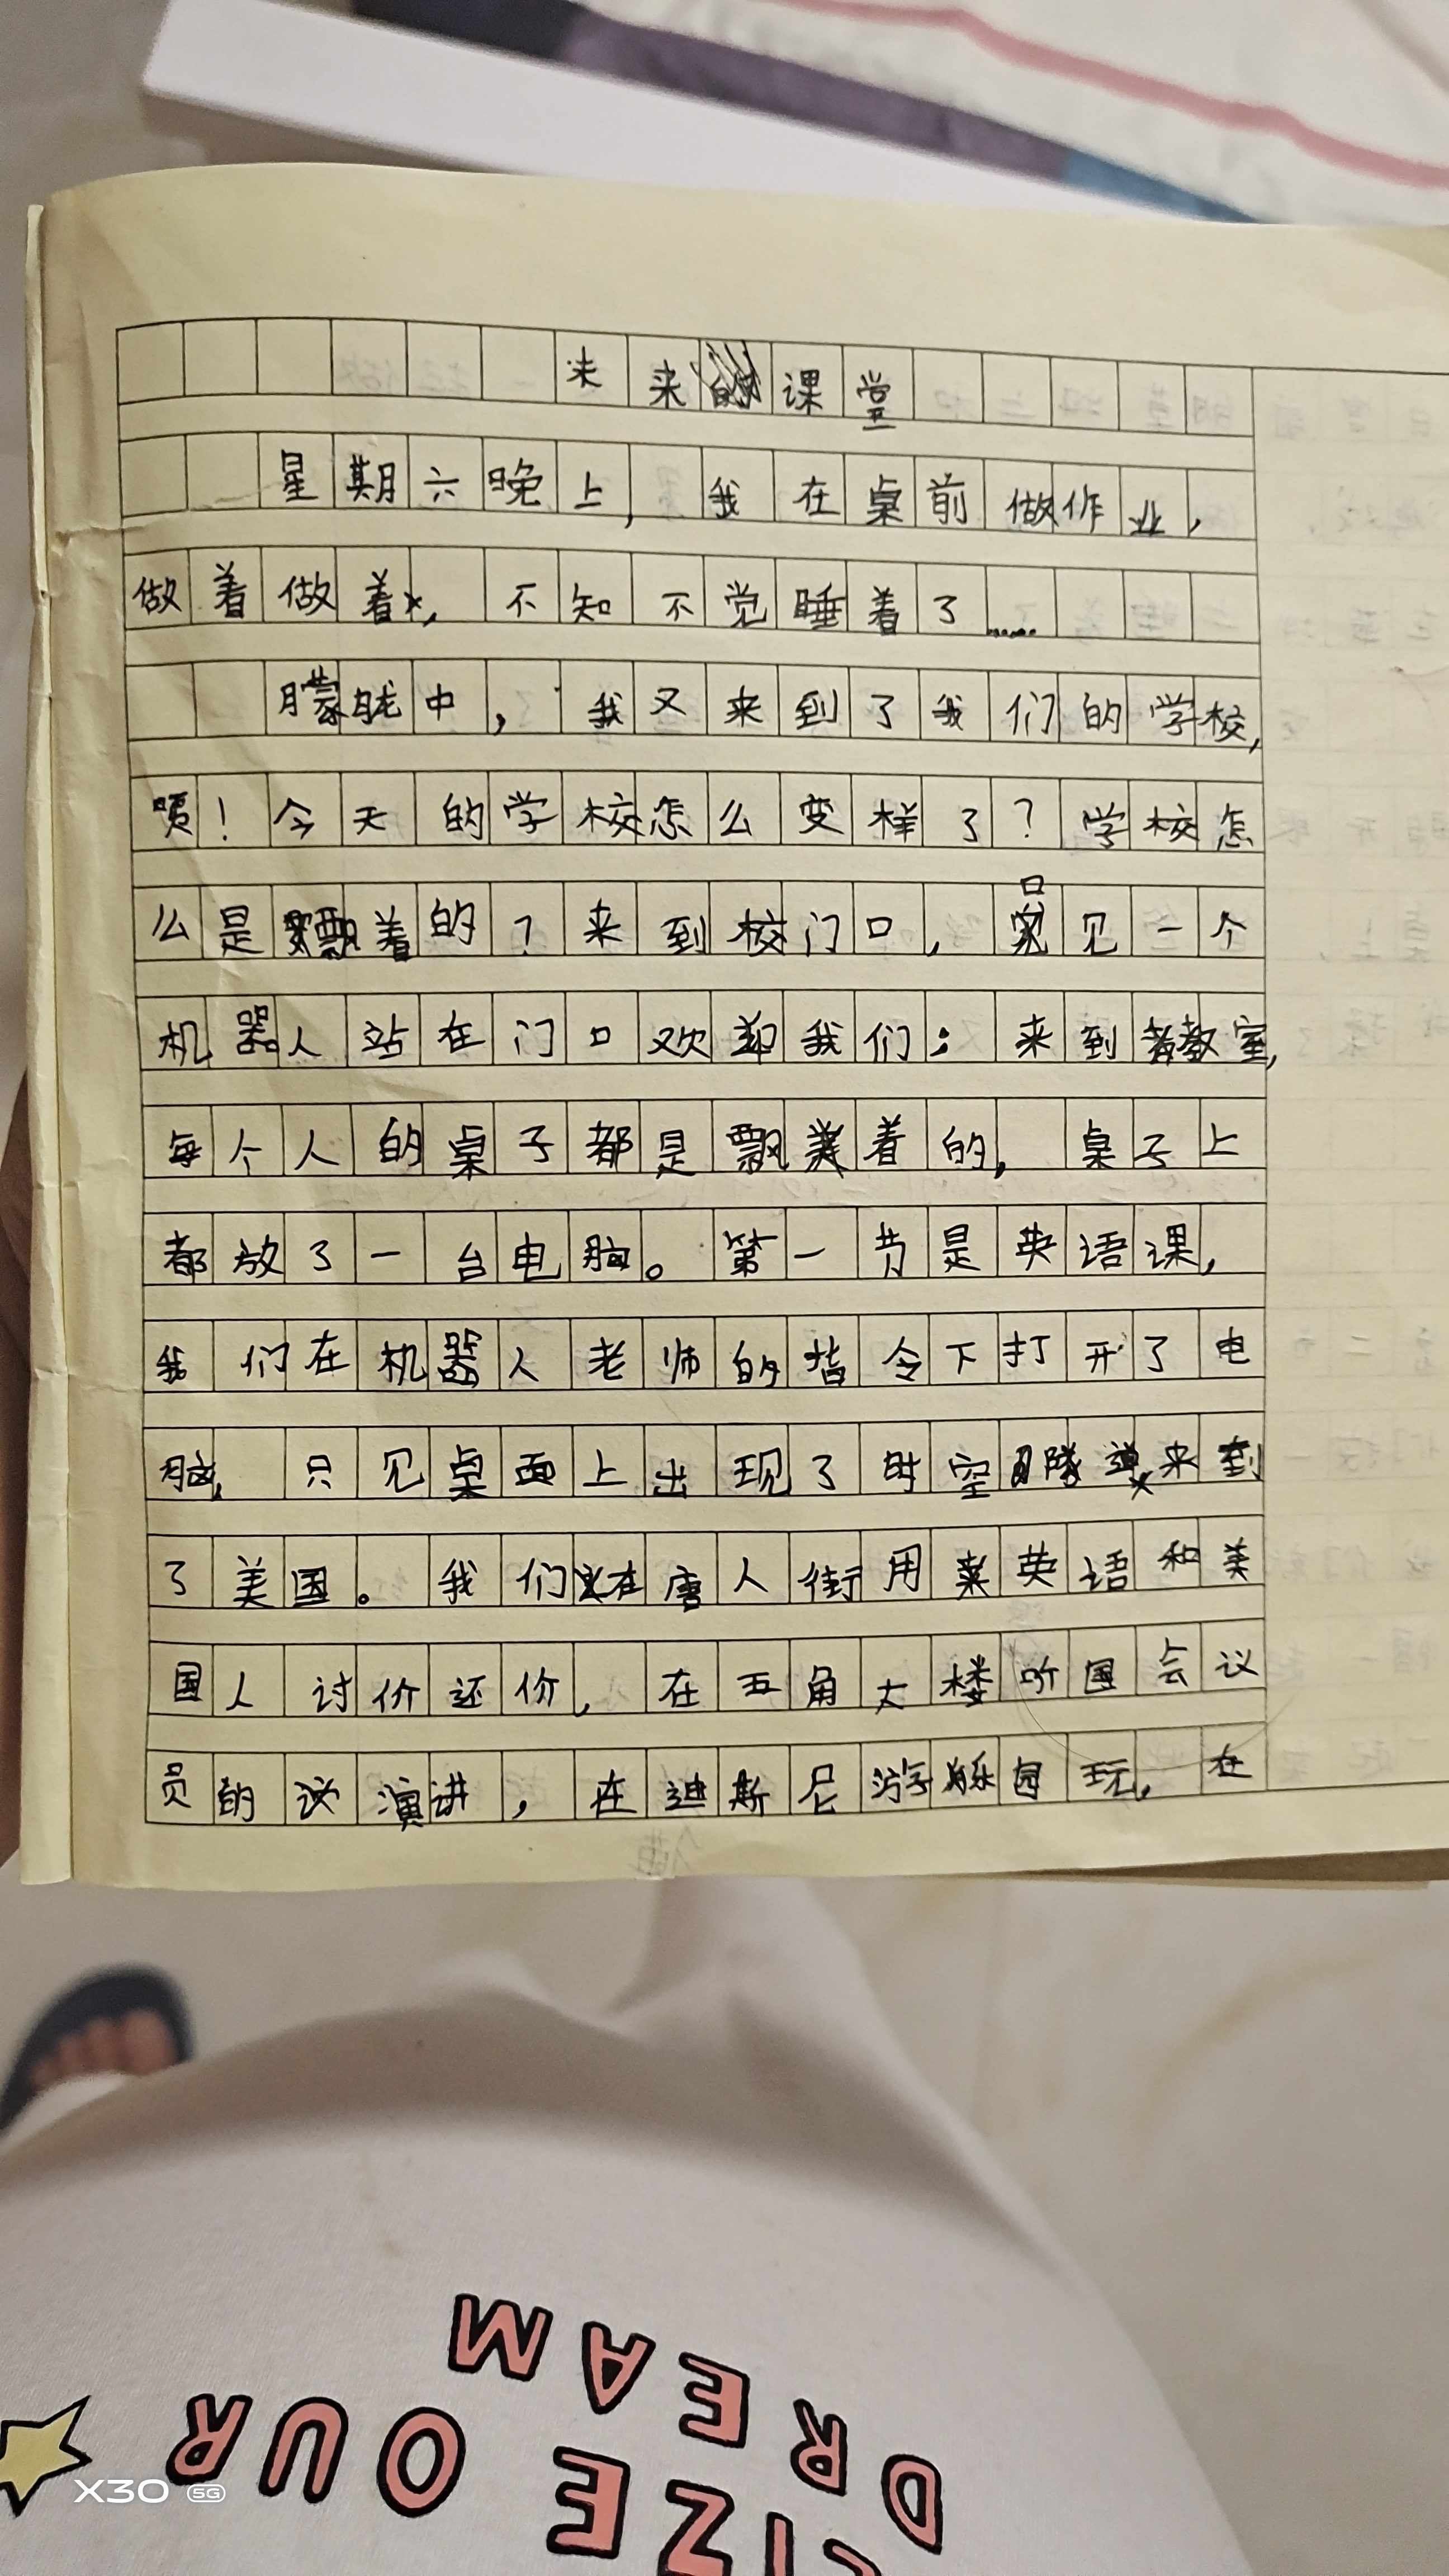 未来课堂
星期六晚上，我在桌前做作业，
做着做着，不知不觉睡着了……
朦胧中，我又来到了我们的学校，
唝！今天的学校怎么变样了？学校怎
么是飘着的？来到校门口，只见一个
机器人站在门口欢迎我们；来到教室，
每个人的桌子都是飘着的，桌子上
都放了一台电脑。第一节是英语课，
我们在机器人老师的指令下打开了电
脑，只见桌面上出现了时空隧道来到
了美国。我们在唐人街用英语和美
国人讨价还价，在五角大楼听国会议
员的演讲，在迪斯尼游乐园玩，在
X30 5G
IZE OUR
DREAM